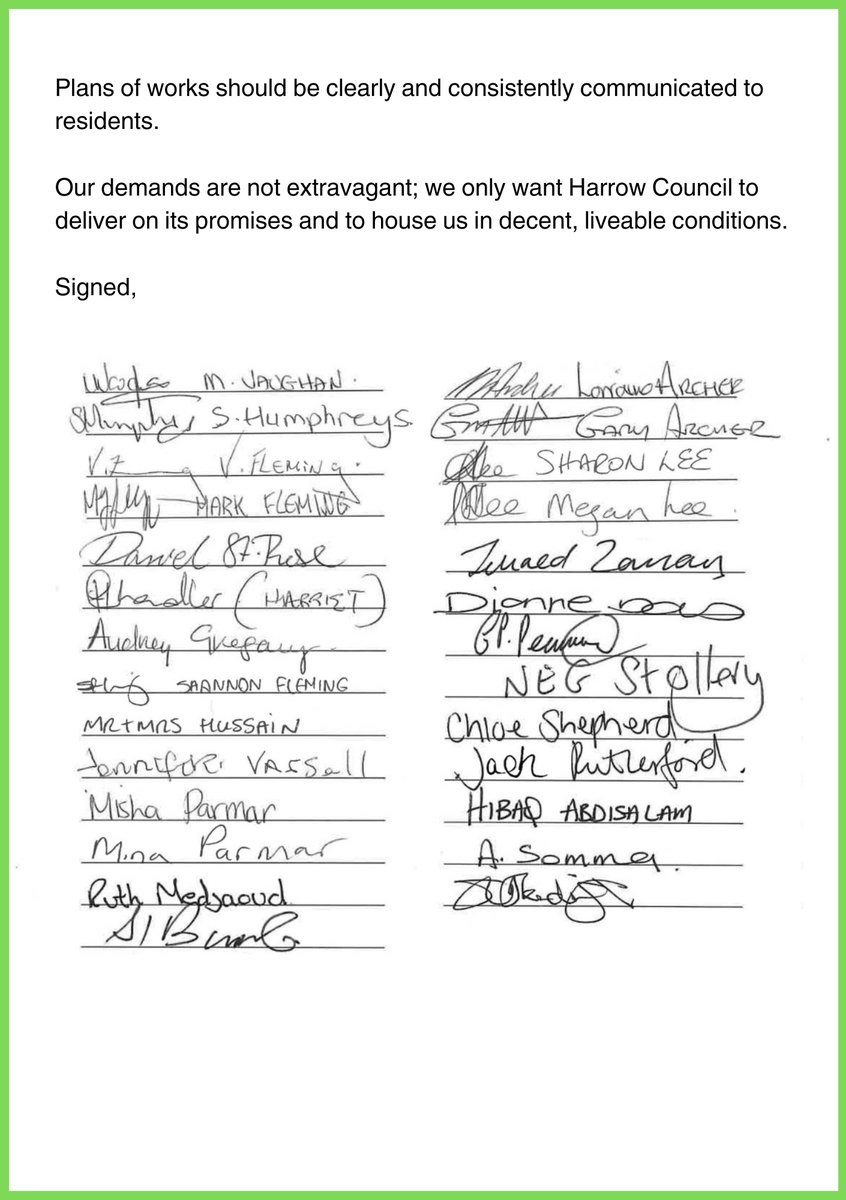 Plans of works should be clearly and consistently communicated to
residents.
Our demands are not extravagant; we only want Harrow Council to
deliver on its promises and to house us in decent, liveable conditions.
Signed,
M. VAUGHAN.
S. Humphreys.
V. FLEMING.
MARK FLEMING
Daniel St. Rose
(HARRIET)
Audrey
SHANNON FLEMING
MR + MRS HUSSAIN
Jennifer VASSELL
Misha Parmar
Mina Parmar
Ruth Medjaoud
ARCHER
GARY ARCHER
SHARON LEE
Megan Lee.
Zaman
Dionne
Stollery
Chloe Shepherd
Jack Rutherford.
HIBAQ ABDISALAM
A.